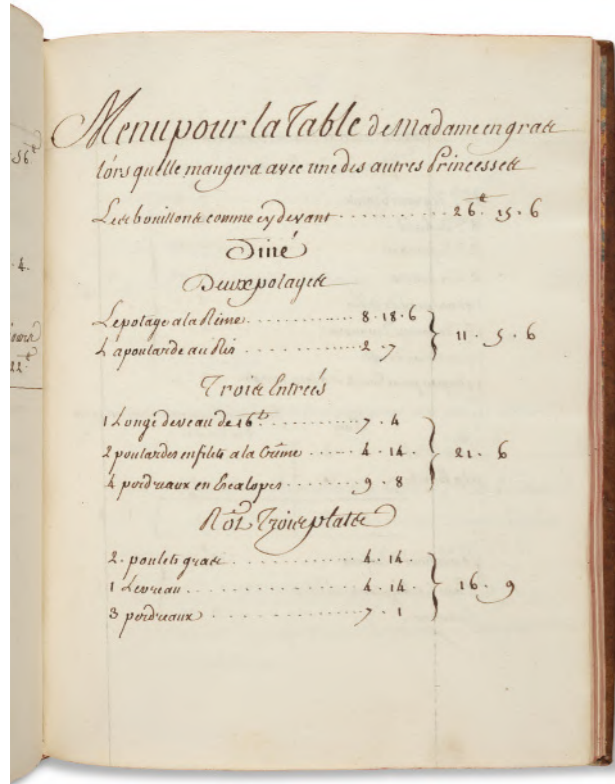 56.tt
4.
22.tt
Menu pour la Table de Madame en gras
lors qu'elle mangera avec une des autres Princesses
Les bouillons comme cy devant ............ 26.tt 15. 6
Diné
Deux potages
Le potage a la Reine ............ 8. 18. 6
La poularde au Ris ............ 2. 7
} 11. 5. 6
Trois Entreés
1 Longe de veau de 16.tt ........ 7. 4
2 poulardes en filets a la Crême ...... 4. 14.
4 perdreaux en Escalopes ........ 9. 8
} 21. 6
Rôt Trois plats
2. poulets gras ............ 4. 14.
1 Levreau ............ 4. 14.
3 perdreaux ............ 7. 1
} 16. 9